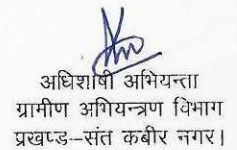 अधिशाषी अभियन्ता
ग्रामीण अभियन्त्रण विभाग
प्रखण्ड–संत कबीर नगर।